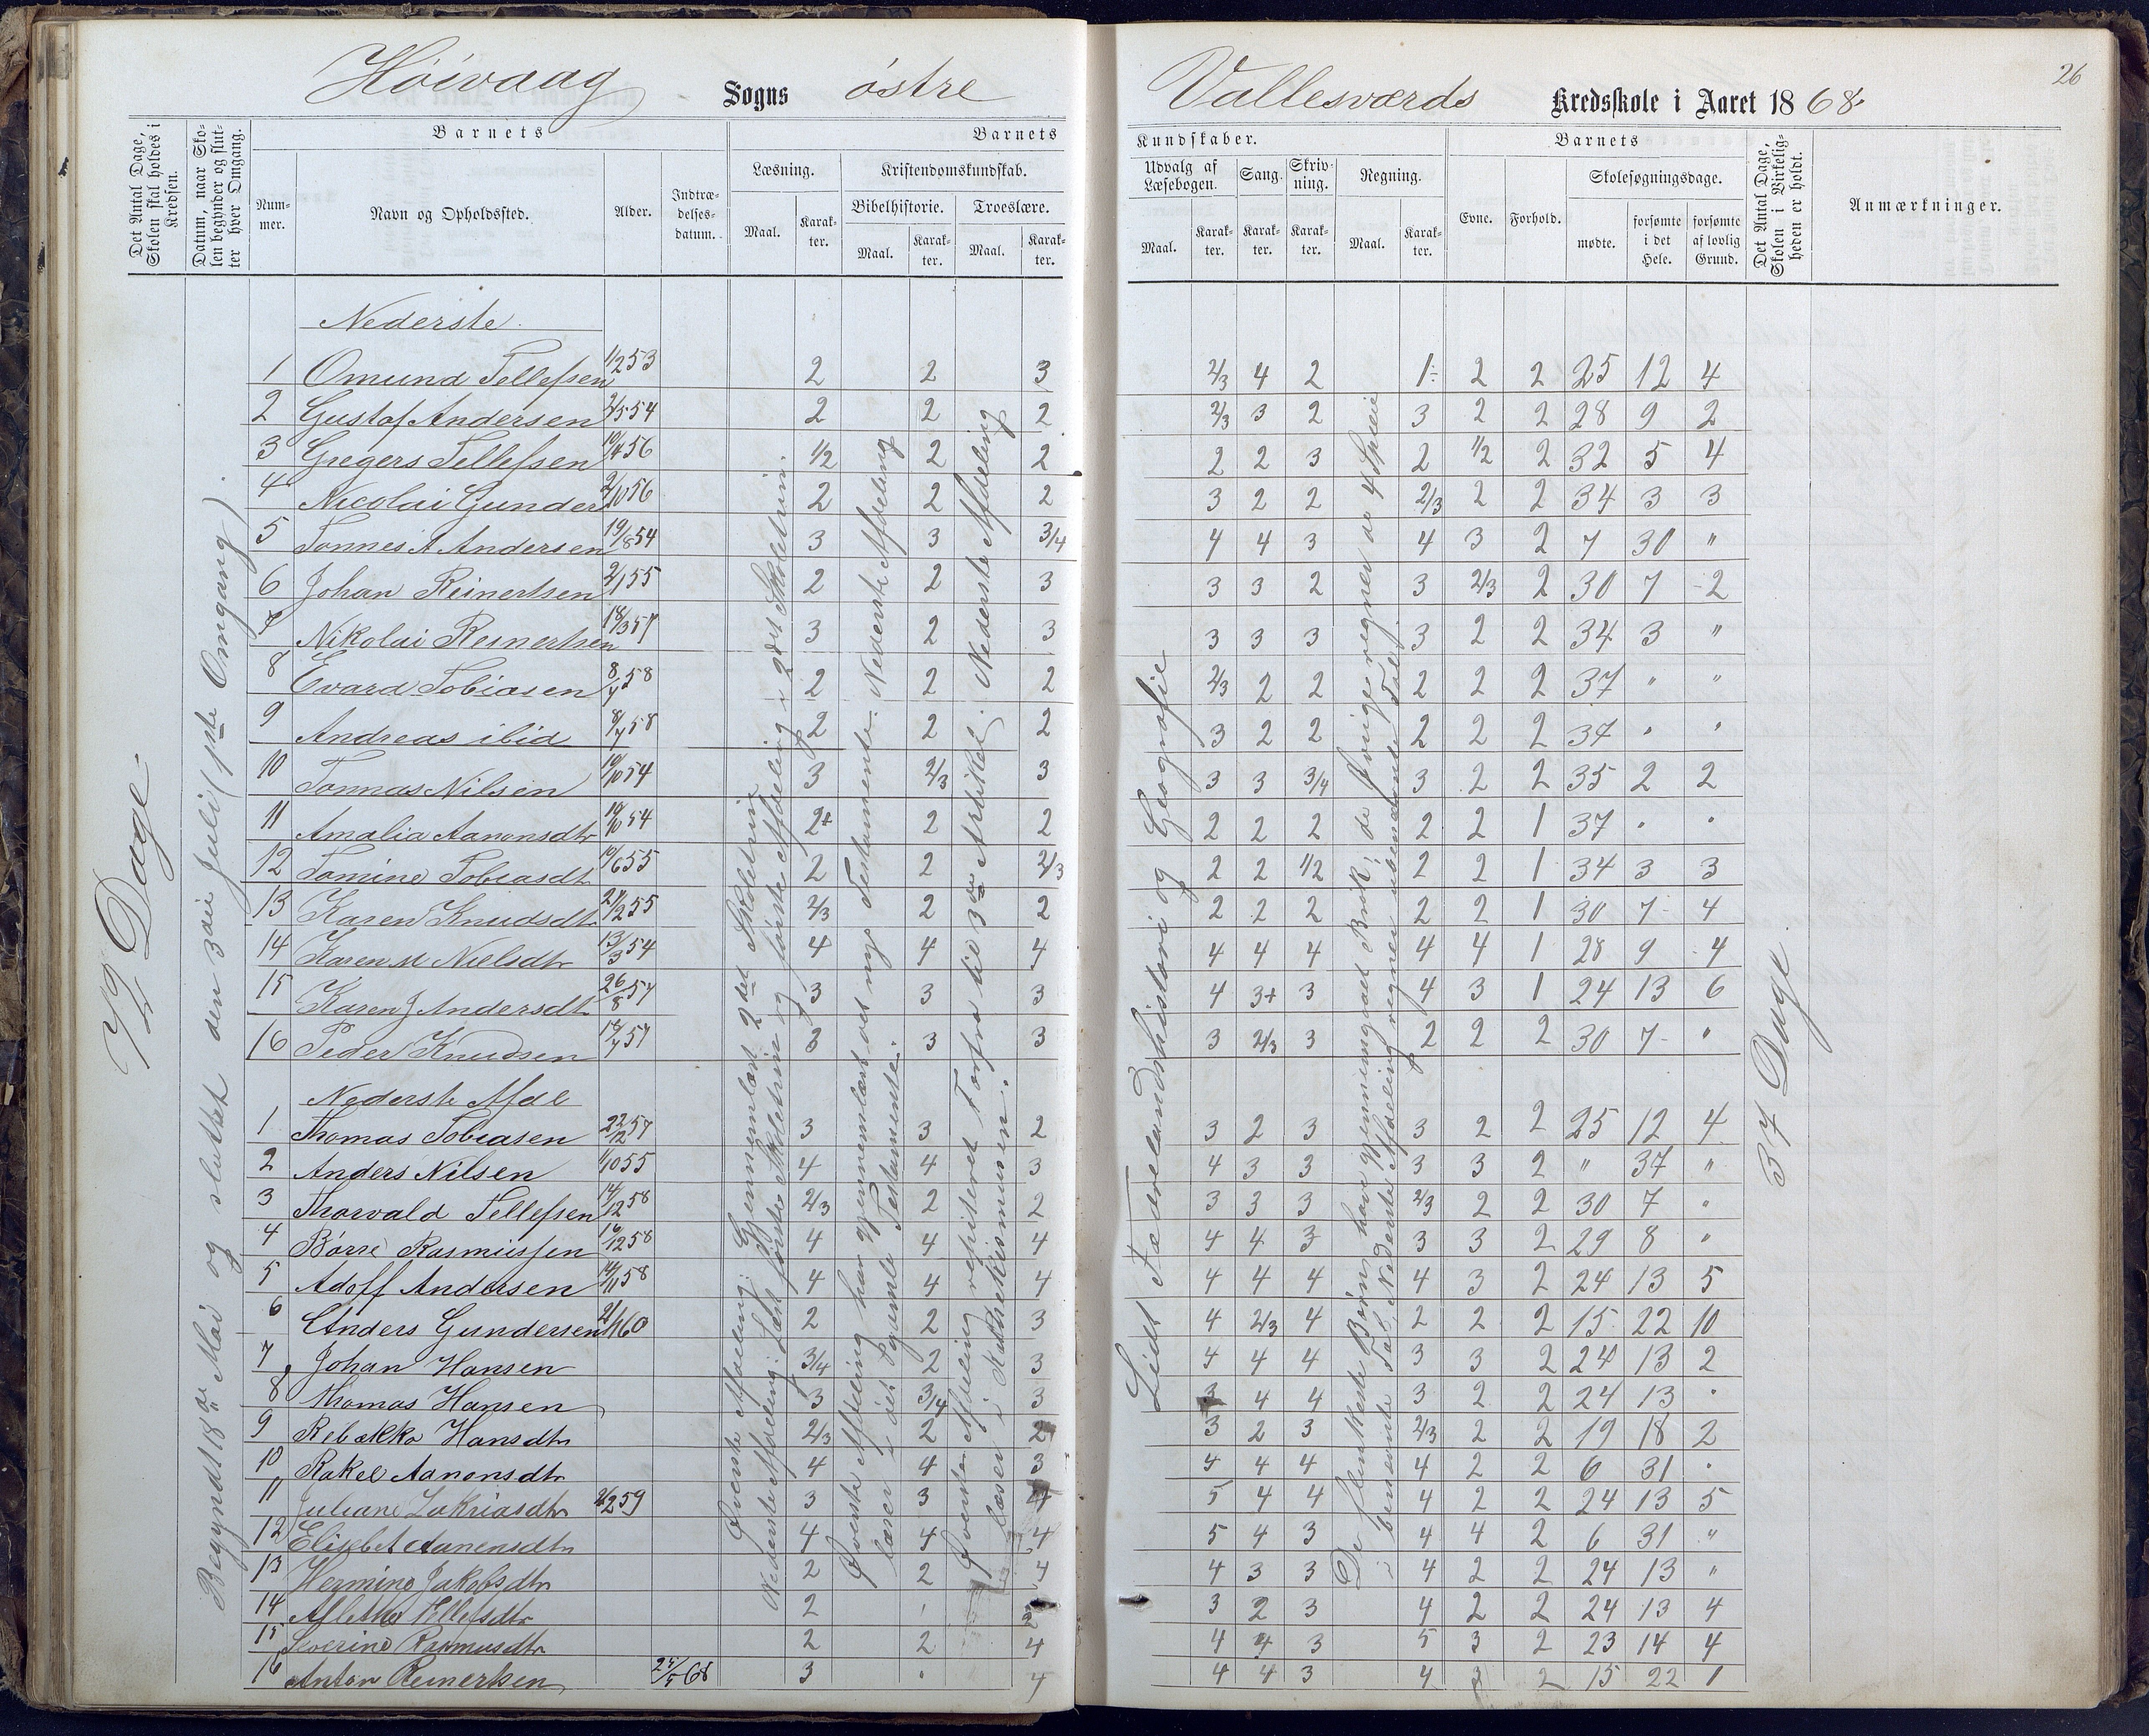 Høivaag Sogns østre Vallesværds Kredsskole i Aaret 1868.
26
Det Antal Dage, Skolen skal holdes i Kredsen.
Datum, naar Skolen begynder og slutter hver Omgang.
Barnets
Nummer.
Navn og Opholdssted.
Alder.
Indtrædelsesdatum.
Barnets Kundskaber.
Læsning.
Maal.
Karakter.
Kristendomskundskab.
Bibelhistorie.
Maal.
Karakter.
Troeslære.
Maal.
Karakter.
Udvalg af Læsebogen.
Maal.
Karakter.
Sang.
Karakter.
Skrivning.
Karakter.
Regning.
Maal.
Karakter.
Barnets
Evne.
Forhold.
Skolesøgningsdage.
mødte.
forsømte i det Hele.
forsømte af lovlig Grund.
Det Antal Dage, Skolen i Virkeligheden er holdt.
Anmærkninger.
72 Dage.
Begyndt 18de Mai og sluttet den 3die Juli (1ste Omgang).
Øverste Afdeling: Gjennemlæst 2det Skoletrin
Nederste Afdeling: Læst første Skoletrin og første Afdeling i 2det Skoletrin.
Øverste Afdeling har gjennemlæst det nye Testamente. Nederste Afdeling
læser i det gamle Testamente.
Øverste Afdeling repiteret Forfra til 3die Artikkel. Nederste Afdeling
læser i Katekismusen.
Lidt Fædrelandshistori og Geografie
De flinkeste Børn have gjennemgaaet Brøk; de øvrige regner de 4 Speci
i benævnte Tal. Nederste Afdeling regner ubenævnte Tal.
37 Dage.
Nederste
1 Omund Tellefsen 1/2 53 2 2 3 2/3 4 2 1- 2 2 25 12 4
2 Gustaf Andersen 2/5 54 2 2 2 2/3 3 2 3 2 2 28 9 2
3 Gregers Tellefsen 10/4 56 1/2 2 2 2 2 3 2 1/2 2 32 5 4
4 Nicolai Gunders 2/10 56 2 2 2 3 2 2 2/3 2 2 34 3 3
5 Tonnes A Andersen 19/8 54 3 3 3/4 4 4 3 4 3 2 7 30 "
6 Johan Reinertsen 2/1 55 2 2 3 3 3 2 3 2/3 2 30 7 2
7 Nikolai Reinertsen 18/3 57 3 2 3 3 3 3 3 2 2 34 3 "
8 Evard Tobiasen 8/4 58 2 2 2 2/3 2 2 2 2 2 37 " "
9 Andreas ibid 8/4 58 2 2 2 3 2 2 2 2 2 37 " "
10 Tonnas Nilsen 19/10 54 3 2/3 3 3 3 3/4 3 2 2 35 2 2
11 Amalia Aanonsdtr 10/10 54 2+ 2 2 2 2 2 2 2 1 37 " "
12 Tomine Tobiasdt 10/6 55 2 2 2/3 2 2 1/2 2 2 1 34 3 3
13 Karen Knudsdtr 21/2 55 2/3 2 2 2 2 2 2 2 1 30 7 4
14 Karen M Nielsdtr 13/3 54 4 4 4 4 4 4 4 4 1 28 9 4
15 Karen J Andersdtr 26/8 57 3 3 3 4 3+ 3 4 3 1 24 13 6
16 Peder Knudsen 57 3 3 3 3 2/3 3 2 2 2 30 7 "
Nederste Afdl
1 Thomas Tobiasen 22/12 57 3 3 2 3 2 3 3 2 2 25 12 4
2 Anders Nilsen 1/10 55 4 4 3 4 3 3 3 3 2 " 37 "
3 Thorvald Tellefsen 14/12 58 2/3 2 2 3 3 3 2/3 2 2 30 7 "
4 Børre Rasmussen 16/12 58 4 4 4 4 4 3 3 3 2 29 8 "
5 Adolf Andersen 14/11 58 4 4 4 4 4 4 4 3 2 24 13 5
6 Anders Gundersen 2/1 60 2 2 3 4 2/3 4 2 2 2 15 22 10
7 Johan Hansen 3/4 2 3 4 4 4 3 3 2 24 13 2
8 Thomas Hansen 3 3/4 3 3 4 4 3 2 2 24 13 "
9 Rebækka Hansdtr 2/3 2 2 3 2 3 2/3 2 2 19 18 2
10 Rakel Aanonsdtr 4 4 3 4 4 4 4 2 2 6 31 "
11 Juliane Zakriasdtr 2/2 59 3 3 4 5 4 4 4 2 2 24 13 5
12 Elisbet Aanensdtr 4 4 4 5 4 3 4 4 2 6 31 "
13 Hermine Jakobsdtr 2 2 4 4 3 3 4 2 2 24 13 "
14 Tellefsdtr 2 2 3 2 3 4 2 2 24 13 4
15 Severine Rasmusdtr 2 2 4 4 4 3 5 3 2 23 14 4
16 Anton Reinertsen 25/5 68 3 " 4 4 4 3 4 3 2 15 22 1